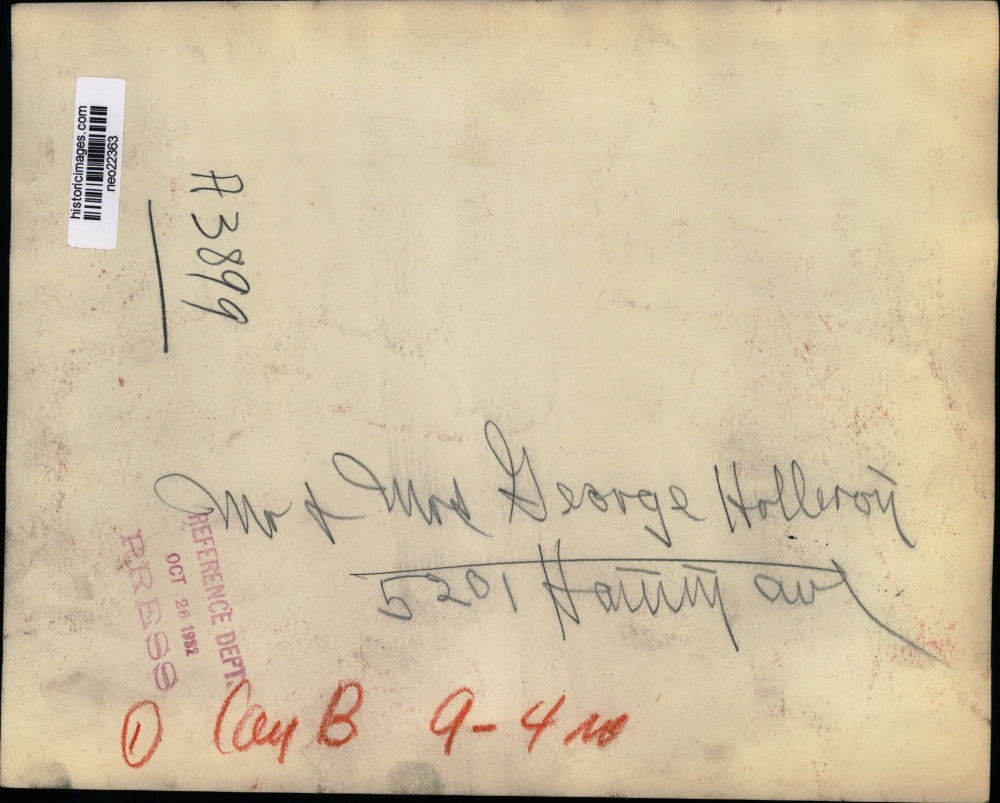 historicimages.com
neo22363
A3899
Mr & Mrs George Holleroy
5201 Hamm Ave
REFERENCE DEPT.
OCT 26 1952
PRESS
1 Cay B 9-4